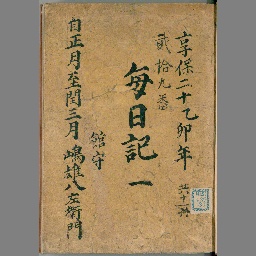 享保二十乙卯年
貳拾九番
共十一冊
毎日記 一
館守
自正月至閏三月 嶋雄八左衛門